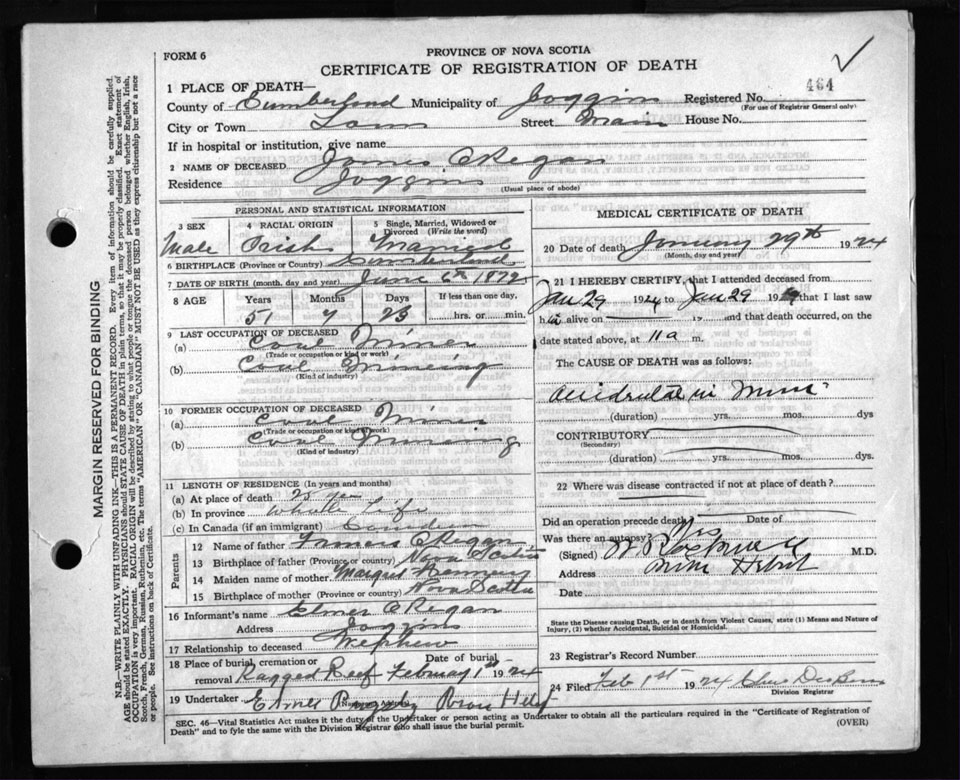 FORM 6
PROVINCE OF NOVA SCOTIA
CERTIFICATE OF REGISTRATION OF DEATH
464
1 PLACE OF DEATH—
County of Cumberland Municipality of Joggins Registered No.
(For use of Registrar General only)
City or Town Town Street Main House No.
If in hospital or institution, give name
2 NAME OF DECEASED James O'Regan
Residence Joggins
(Usual place of abode)
PERSONAL AND STATISTICAL INFORMATION
3 SEX Male
4 RACIAL ORIGIN Irish
5 Single, Married, Widowed or Divorced (Write the word) Married
6 BIRTHPLACE (Province or Country) Cumberland
7 DATE OF BIRTH (month, day and year) June 6th 1872
8 AGE Years Months Days If less than one day,
51 7 23 hrs. or min.
9 LAST OCCUPATION OF DECEASED
(a) Coal Miner
(Trade or occupation or kind or work)
(b) Coal Mineing
(Kind of industry)
10 FORMER OCCUPATION OF DECEASED
(a) Coal Miner
(Trade or occupation or kind of work)
(b) Coal Mineing
(Kind of industry)
11 LENGTH OF RESIDENCE (In years and months)
(a) At place of death 25 ye
(b) In province Whole Life
(c) In Canada (if an immigrant) Canadian
Parents
12 Name of father Francis O'Regan
13 Birthplace of father (Province or country) Nova Scotia
14 Maiden name of mother Margret
15 Birthplace of mother (Province or country) Nova Scotia
16 Informant's name Elmer O'Regan
Address Joggins
17 Relationship to deceased Nephew
18 Place of burial, cremation or removal Ragged Reef Date of burial February 1st 1924
19 Undertaker Elmer River Hebert
MEDICAL CERTIFICATE OF DEATH
20 Date of death January 29th 1924
(Month, day and year)
21 I HEREBY CERTIFY, that I attended deceased from
Jan 29 1924 to Jan 29 19 that I last saw
h alive on 19 and that death occurred, on
date stated above, at 11 a m.
The CAUSE OF DEATH was as follows:
Accidental in Mine
(duration) yrs. mos. dys
CONTRIBUTORY
(Secondary)
(duration) yrs. mos. dys.
22 Where was disease contracted if not at place of death?
Did an operation precede death? Date of
Was there an autopsy? Yes
(Signed) M.D.
Address River Hebert
Date
State the Disease causing Death, or in death from Violent Causes, state (1) Means and Nature of Injury, (2) whether Accidental, Suicidal or Homicidal.
23 Registrar's Record Number
24 Filed Feb 1st 1924
Division Registrar
SEC. 46—Vital Statistics Act makes it the duty of the Undertaker or person acting as Undertaker to obtain all the particulars required in the "Certificate of Registration of
Death" and to fyle the same with the Division Registrar who shall issue the burial permit. (OVER)
MARGIN RESERVED FOR BINDING
N.B.—WRITE PLAINLY WITH UNFADING INK—THIS IS A PERMANENT RECORD. Every item of information should be carefully supplied.
AGE should be stated EXACTLY. PHYSICIANS should STATE CAUSE OF DEATH in plain terms, so that it may be properly classified. Exact statement of
OCCUPATION is very important. RACIAL ORIGIN will be described by stating to what people or tongue the deceased person belonged whether English, Irish,
Scotch, French, German, Russian, Ruthenian, etc. The terms "AMERICAN" OR "CANADIAN" MUST NOT BE USED as they express citizenship but not a race
or people. See instructions on back of Certificate.